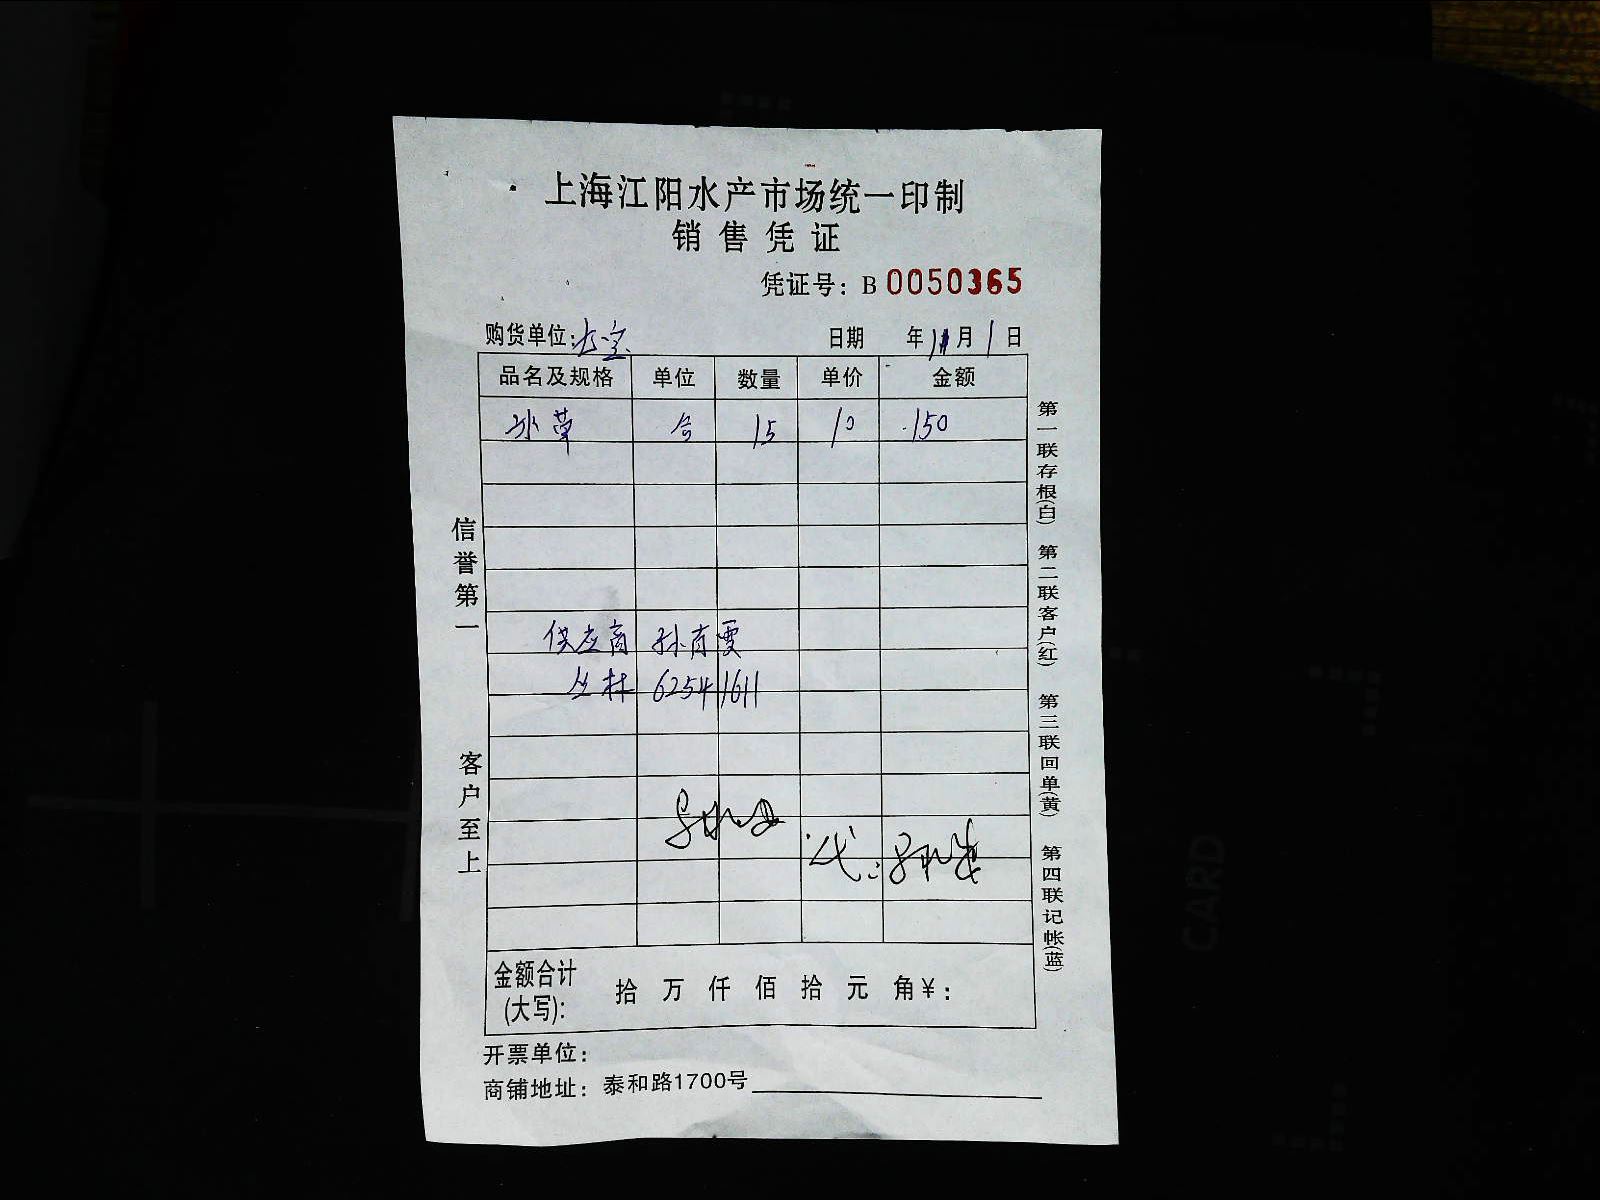 上海江阳水产市场统一印制
销售凭证
凭证号：B 0050365
购货单位：
日期 年 11月1日
品名及规格 单位 数量 单价 金额
冰草 合 15 10 150
供应商 孙肖雯
丛林 62541611
代：
金额合计(大写)： 拾 万 仟 佰 拾 元 角￥：
开票单位：
商铺地址：泰和路1700号
信誉第一 客户至上
第一联存根(白) 第二联客户(红) 第三联回单(黄) 第四联记帐(蓝)
CARD